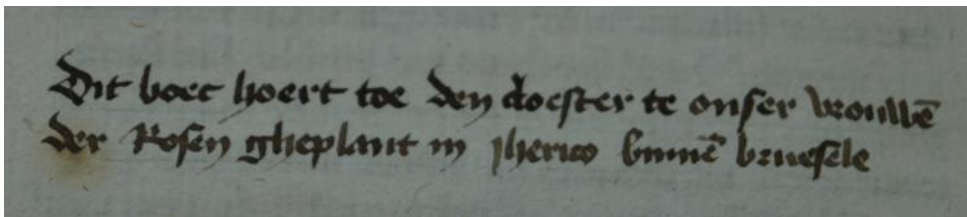 Dit boec hoert toe den cloester te onser vrouwē
der Rosen gheplant in Jherico binnē bruesele